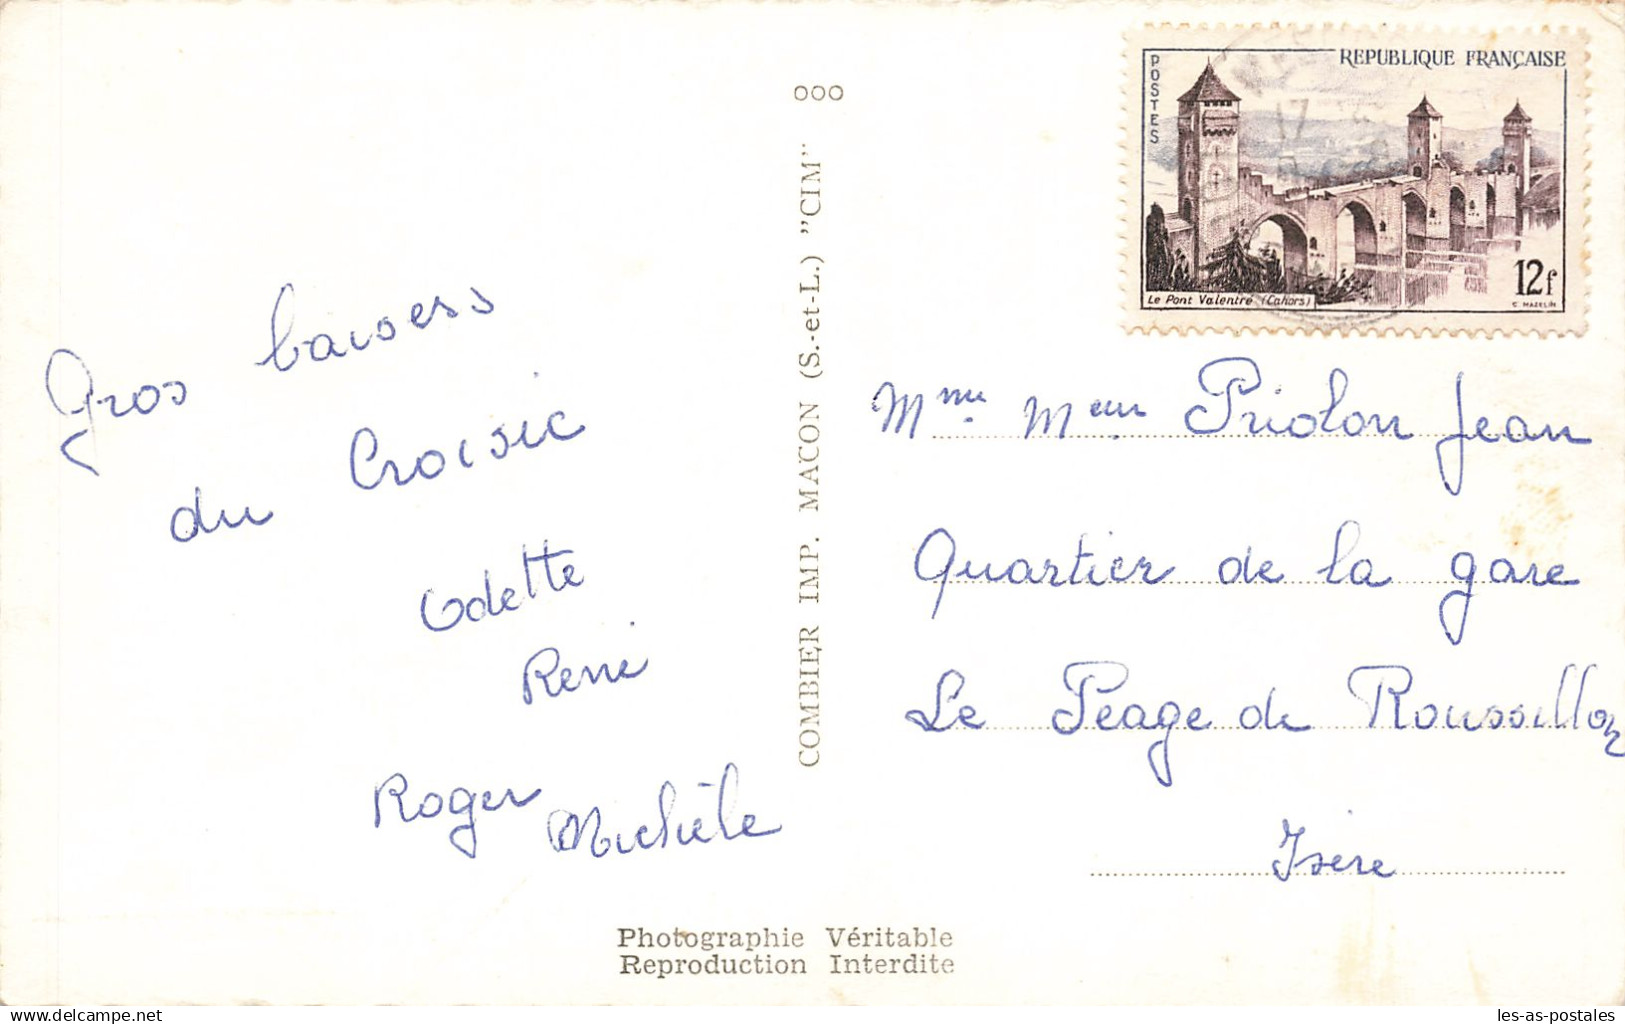 Gros baisers
du Croisic
Odette
René
Roger Michèle
ooo
COMBIER IMP. MACON (S.-et-L.) "CIM"
POSTES
REPUBLIQUE FRANÇAISE
Le Pont Valentré (Cahors)
12f
C. MAZELIN
17
Mme Meur Priolon Jean
Quartier de la gare
Le Peage de Roussillon
Isère
Photographie Véritable
Reproduction Interdite
delcampe.net
les-as-postales